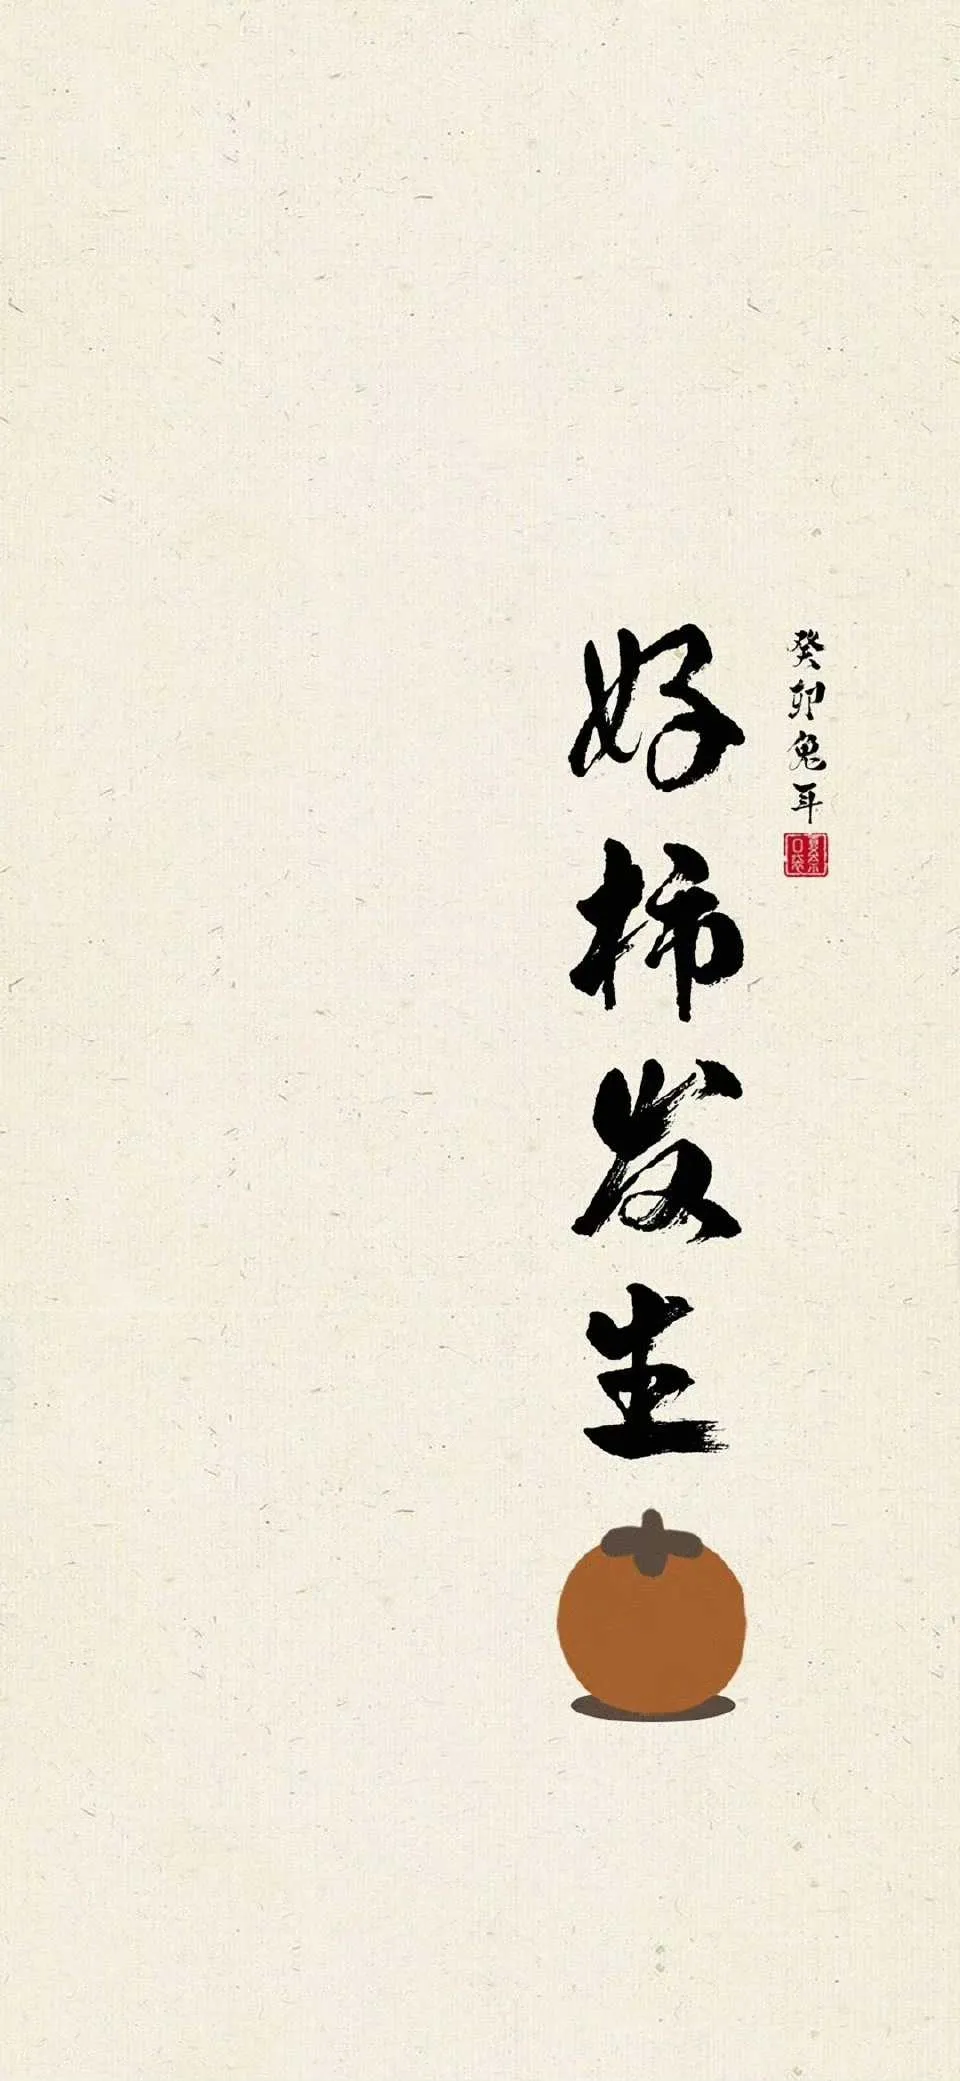 癸卯兔耳
好柿发生